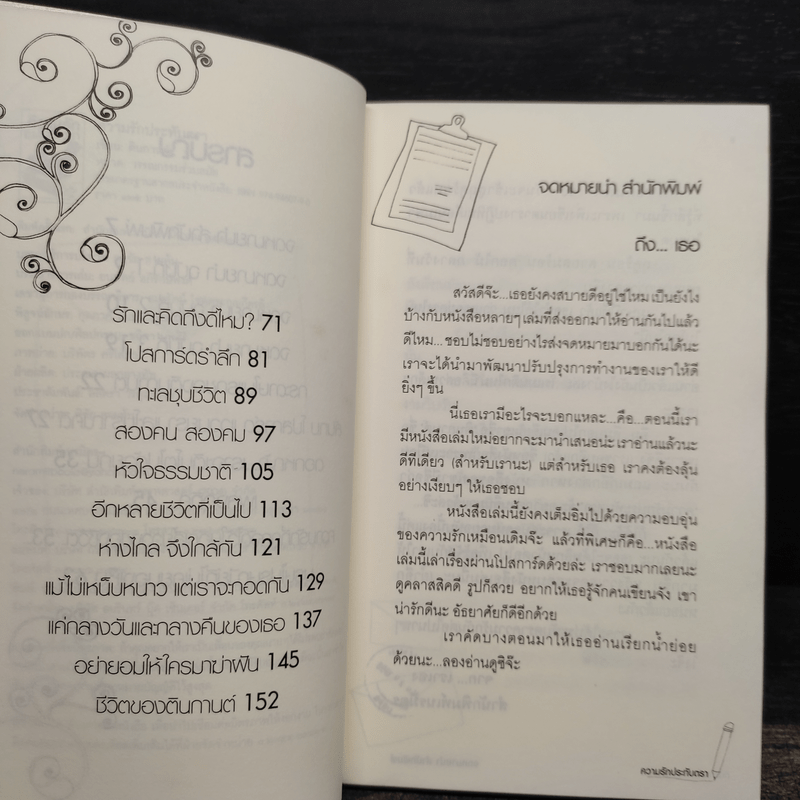 รักและคิดถึงดีไหม? 71
โปสการ์ดรำลึก 81
ทะเลชุบชีวิต 89
สองคน สองคม 97
หัวใจธรรมชาติ 105
อีกหลายชีวิตที่เป็นไป 113
ห่างไกล จึงใกล้กัน 121
แม้ไม่เหน็บหนาว แต่เราจะกอดกัน 129
แค่กลางวันและกลางคืนของเธอ 137
อย่ายอมให้ใครมาฆ่าฝัน 145
ชีวิตของตินกานต์ 152
จดหมายนำ สำนักพิมพ์
ถึง... เธอ
สวัสดีจ๊ะ...เธอยังคงสบายดีอยู่ใช่ไหม เป็นยังไง
บ้างกับหนังสือหลายๆ เล่มที่ส่งออกมาให้อ่านกันไปแล้ว
ดีไหม...ชอบไม่ชอบอย่างไรส่งจดหมายมาบอกกันได้นะ
เราจะได้นำมาพัฒนาปรับปรุงการทำงานของเราให้ดี
ยิ่งๆ ขึ้น
นี่เธอเรามีอะไรจะบอกแหละ...คือ...ตอนนี้เรา
มีหนังสือเล่มใหม่อยากจะมานำเสนอน่ะ เราอ่านแล้วนะ
ดีทีเดียว (สำหรับเรานะ) แต่สำหรับเธอ เราคงต้องลุ้น
อย่างเงียบๆ ให้เธอชอบ
หนังสือเล่มนี้ยังคงเต็มอิ่มไปด้วยความอบอุ่น
ของความรักเหมือนเดิมจ๊ะ แล้วที่พิเศษก็คือ...หนังสือ
เล่มนี้เล่าเรื่องผ่านโปสการ์ดด้วยล่ะ เราชอบมากเลยนะ
ดูคลาสสิคดี รูปก็สวย อยากให้เธอรู้จักคนเขียนจัง เขา
น่ารักดีนะ อัธยาศัยก็ดีอีกด้วย
เราคัดบางตอนมาให้เธออ่านเรียกน้ำย่อย
ด้วยนะ...ลองอ่านดูซิจ๊ะ
ความรักประทับตรา